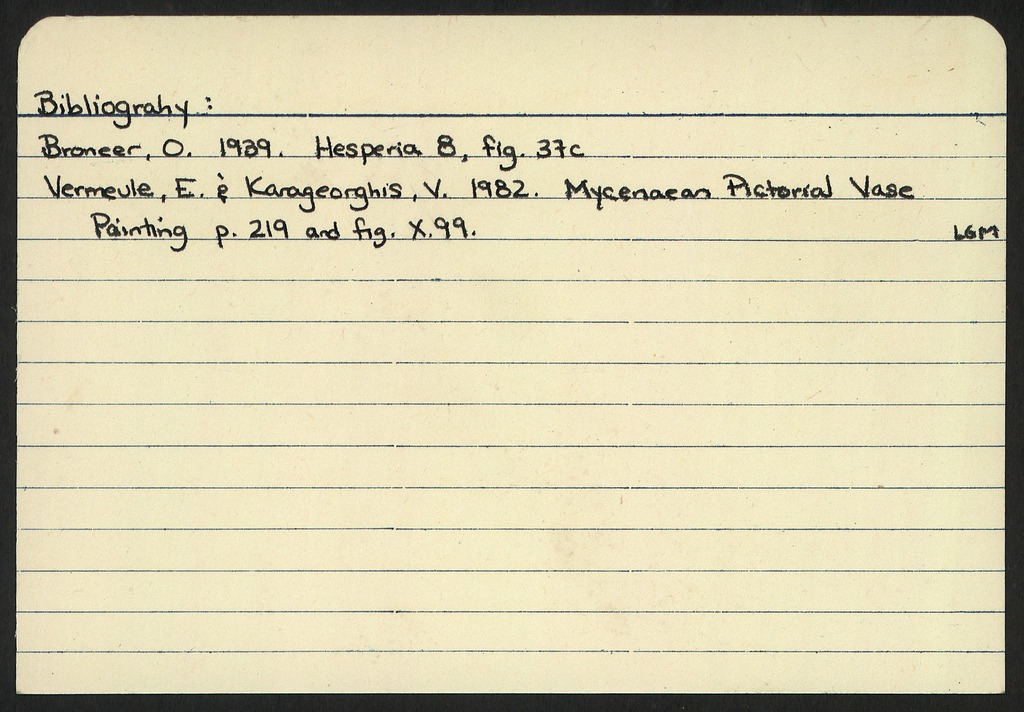 Bibliograhy :
Broneer, O. 1939. Hesperia 8, fig. 37c
Vermeule, E. & Karageorghis, V. 1982. Mycenaean Pictorial Vase
Painting p. 219 and fig. X.99. LGM